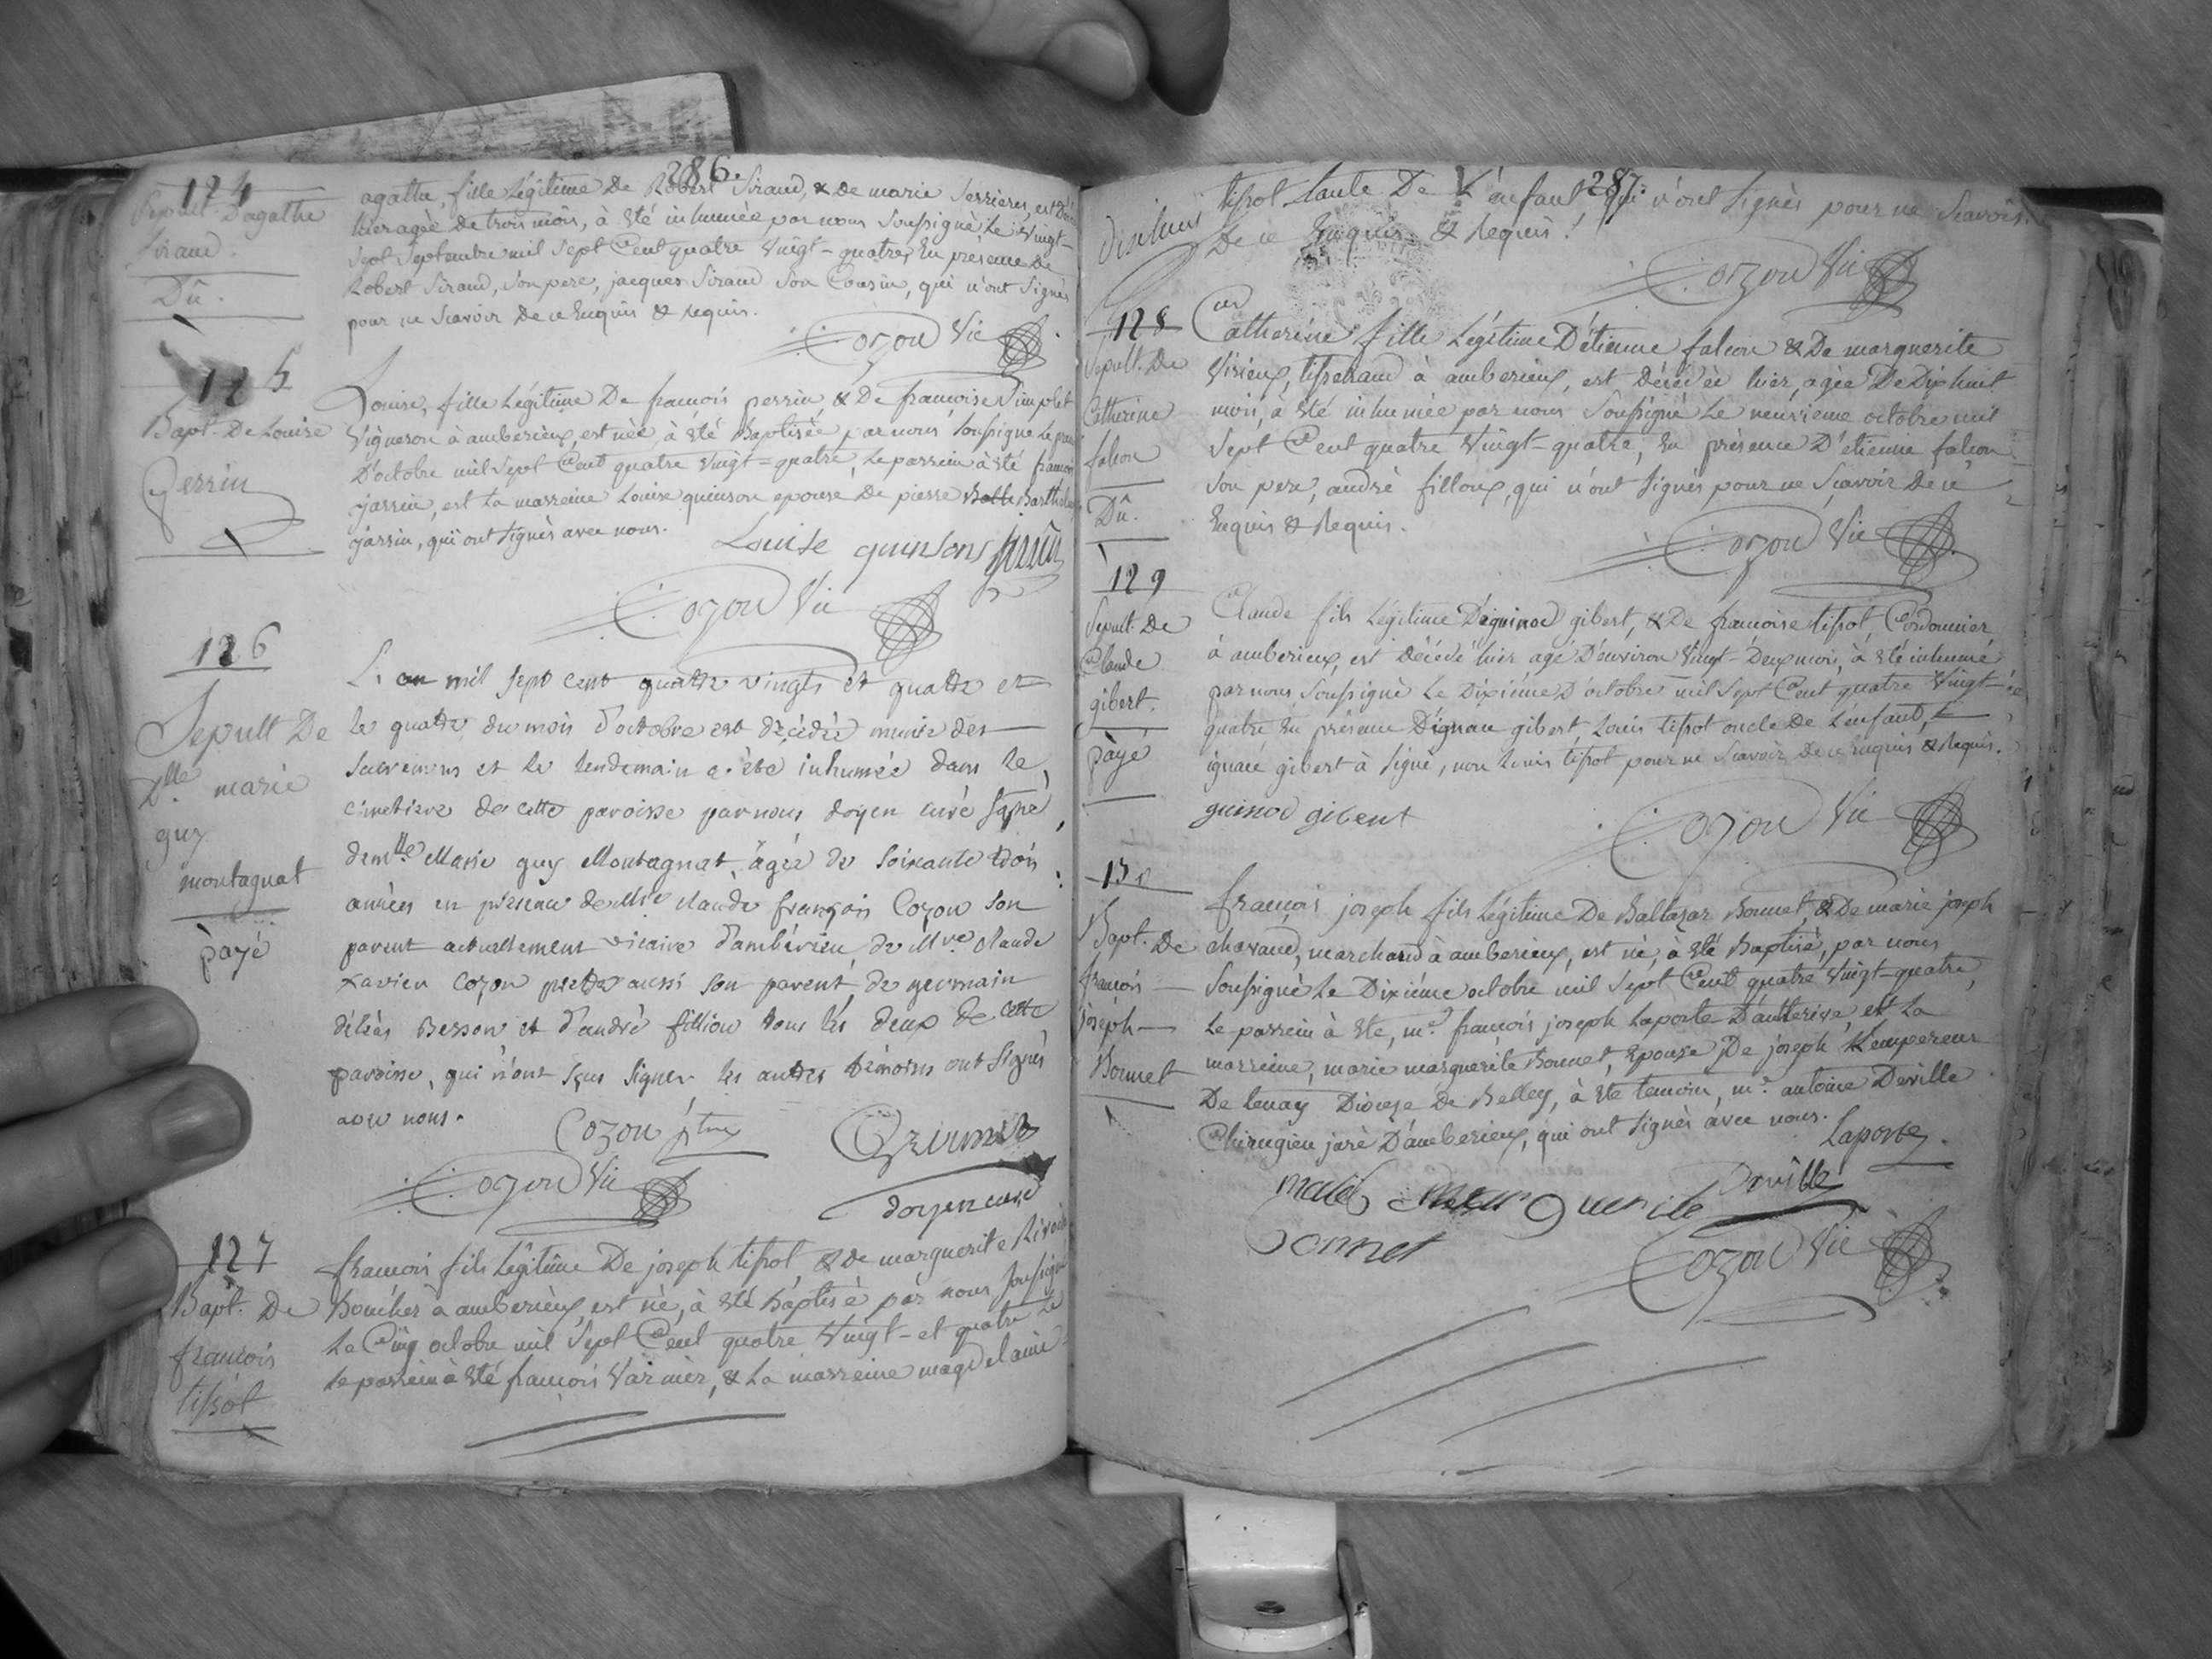 286.
124
Sepult. D'agathe
Siraud.
Dû.
agathe, fille Légitime De Robert Siraud, & de marie Serrieres, est
hier agèe de trois mois, à été inhumée par nous Soussignè Le vingt-
Sept Septembre mil Sept Cent quatre Vingt-quatre, En présence De
Robert Siraud, Son pere, jacques Siraud Son Cousin, qui n'ont Signés
pour ne Scavoir De ce Enquis & requis.
Cozon Vic
125
Bapt. De Louise
Perrin
Louise, fille Légitime De francois perrin, & De francoise Simplet
Vigneron à amberieux, est née, à été Baptisée par nous Soussigné Le
D'octobre mil Sept Cent quatre Vingt-quatre, Le parrein à été francois
jarrin, est la marreine Louise quinson epouse de pierre
jarrin, qui ont Signès avec nous.
Louise quinsons
Cozon Vic
126
Sepult De
Dlle marie
guy
montagnat
pàyé
L'an mil sept cent quattre vingts et quattre et
le quattre du mois d'octobre est décédée munie des
sacremens et le lendemain a été inhumée dans le
cimetiere de cette paroisse par nous doyen curé
demlle Marie guy Montagnat, âgée de soixante trois
années en présence de Mre claude françois Cozon son
parent actuellement vicaire d'ambérieu, de Mre claude
xavier Cozon prettre aussi son parent, de germain
Besson et d'andré fillion tous les deux de cette
paroisse, qui n'ont sçus signer les autres témoins ont signés
avec nous.
Cozon ptre
Cozon Vic
doyen curé
127
Bapt. De
francois
tissot
francois fils Légitime De joseph tissot, & de marguerite
Boucher à amberieux, est né, à été baptisé par nous Soussigné
Le Cinq octobre mil Sept Cent quatre Vingt-et quatre
Le parrein à été francois Varnier, & La marreine magdelaine
287.
tissot tante De L'enfant qui n'ont Signès pour ne Scavoir
De ce Enquis & Requis.
Cozon Vic
128
Sepult. De
Catherine
falcon
Dû.
Catherine fille Légitime D'étienne falcon & De marguerite
Virieux, tisserand à amberieux, est Décédée hier, agèe De Dixhuit
mois, à été inhumée par nous Soussigné Le neuvieme octobre mil
Sept Cent quatre Vingt-quatre, En présence D'étienne falcon
Son pere, andré filloux, qui n'ont Signés pour ne Scavoir De ce
Enquis & Requis.
Cozon Vic
129
Sepult. De
Claude
gibert.
pàyé
Claude fils Légitime D'eguinod gibert, & De francoise tissot, Cordonnier
à amberieux, est Décédé hier, agé D'environ Vingt-Deux mois, à été inhumé
par nous Soussigné Le Dixiéme D'octobre mil Sept Cent quatre Vingt-
quatre En présence gibert, Louis tissot oncle De L'enfant,
gibert à Signé, non Louis tissot pour ne Scavoir De ce Enquis & Requis.
guinod gibert
Cozon Vic
130
Bapt. De
francois
joseph
Bonnet
francois joseph fils Légitime De Baltazar Bonnet, & De marie joseph
chavand, marchand à amberieux, est né, à été Baptisé, par nous
Soussigné Le Dixiéme octobre mil Sept Cent quatre Vingt-quatre,
Le parrein à été, mr. francois joseph Laporte D'auterive, et La
marreine, marie marguerite Bonnet, Epouse De joseph Lempereur
De tenay Diocèze de Belley, à été temoin, mr. antoine Deville
Chirugien juré D'amberieux, qui ont Signés avec nous.
Laporte
Deville
marie Marguerite
Bonnet
Cozon Vic